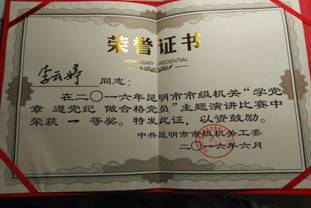 荣誉证书
HONORARY CREDENTIAL
李云婷 同志：
在二〇一六年昆明市市级机关“学党
章 遵党纪 做合格党员”主题演讲比赛中
荣获 一 等奖。特发此证，以资鼓励。
中共昆明市市级机关工委
二〇一六年六月